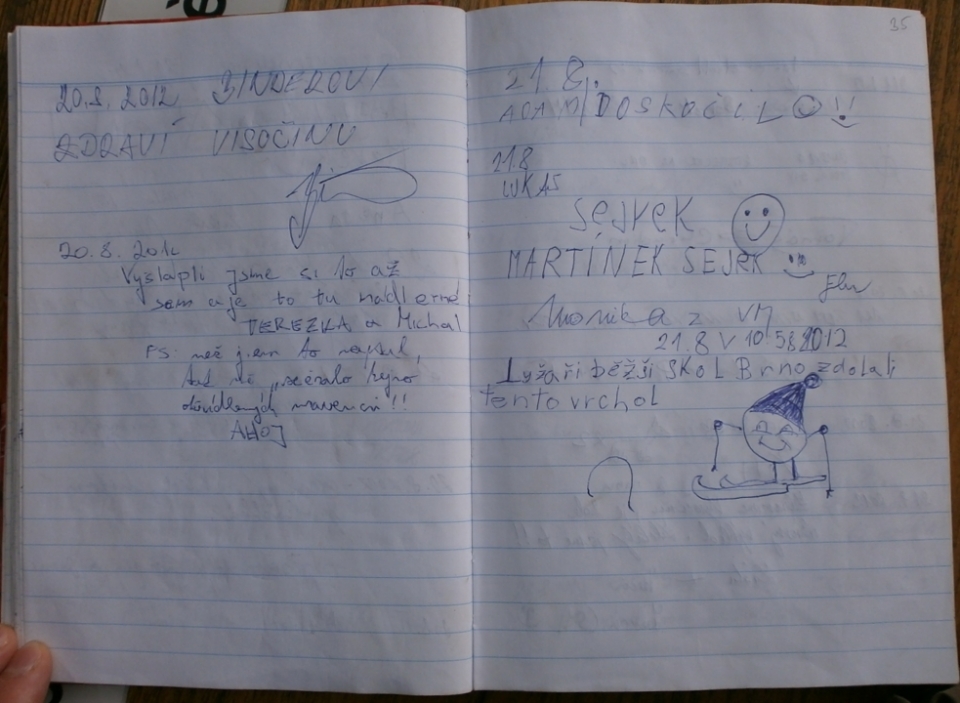 20.8. 2012 BINDEROVI
ZDRAVÍ VISOČINU
20. 8. 2012
Vyšlapli jsme si to až
sem a je to tu nádherné
TEREZKA a Michal
PS: než jsem to napsal,
tak mě sežralo hejno
okřídlených mravenců!!
AHOJ
35
21. 8.
ADAM DOSKOČIL !!
21.8
LUKAS
SEJREK
MARTÍNEK SEJRK
Monika z VM
21.8 V 10 58 2012
Lyžaři běžši SKOL Brno zdolali
tento vrchol